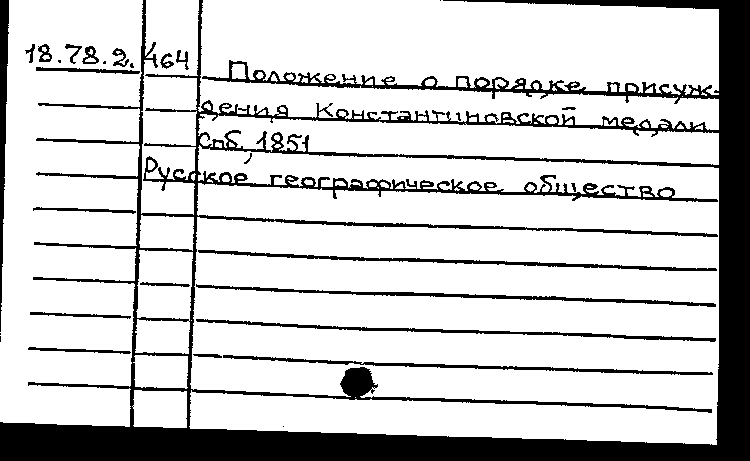 18.78.2. 464 Положение о порядке присуж-
дения Константиновской медали
Спб., 1851
Русское географическое общество